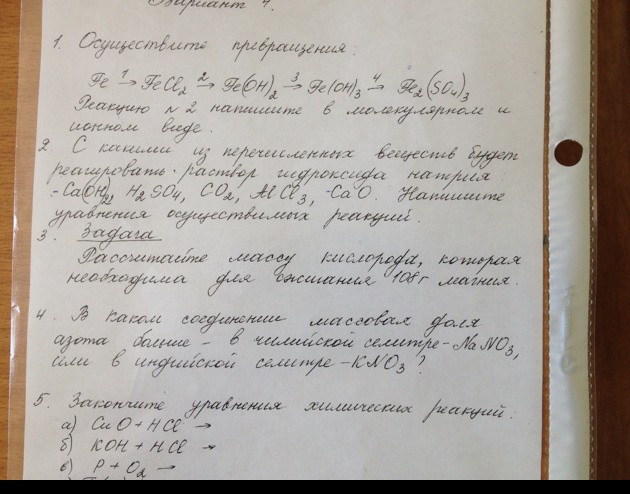 Вариант 4.
1. Осуществите превращения:
Fe 1→ FeCl₂ 2→ Fe(OH)₂ 3→ Fe(OH)₃ 4→ Fe₂(SO₄)₃
Реакцию N 2 напишите в молекулярном и
ионном виде.
2. С какими из перечисленных веществ будет
реагировать раствор гидроксида натрия:
- Ca(OH)₂, H₂SO₄, CO₂, AlCl₃, -CaO. Напишите
уравнения осуществимых реакций.
3. Задача
Рассчитайте массу кислорода, которая
необходима для сжигания 108 г магния.
4. В каком соединении массовая доля
азота больше - в чилийской селитре - NaNO₃,
или в индийской селитре - KNO₃?
5. Закончите уравнения химических реакций:
а) CuO + HCl →
б) KOH + HCl →
в) P + O₂ →